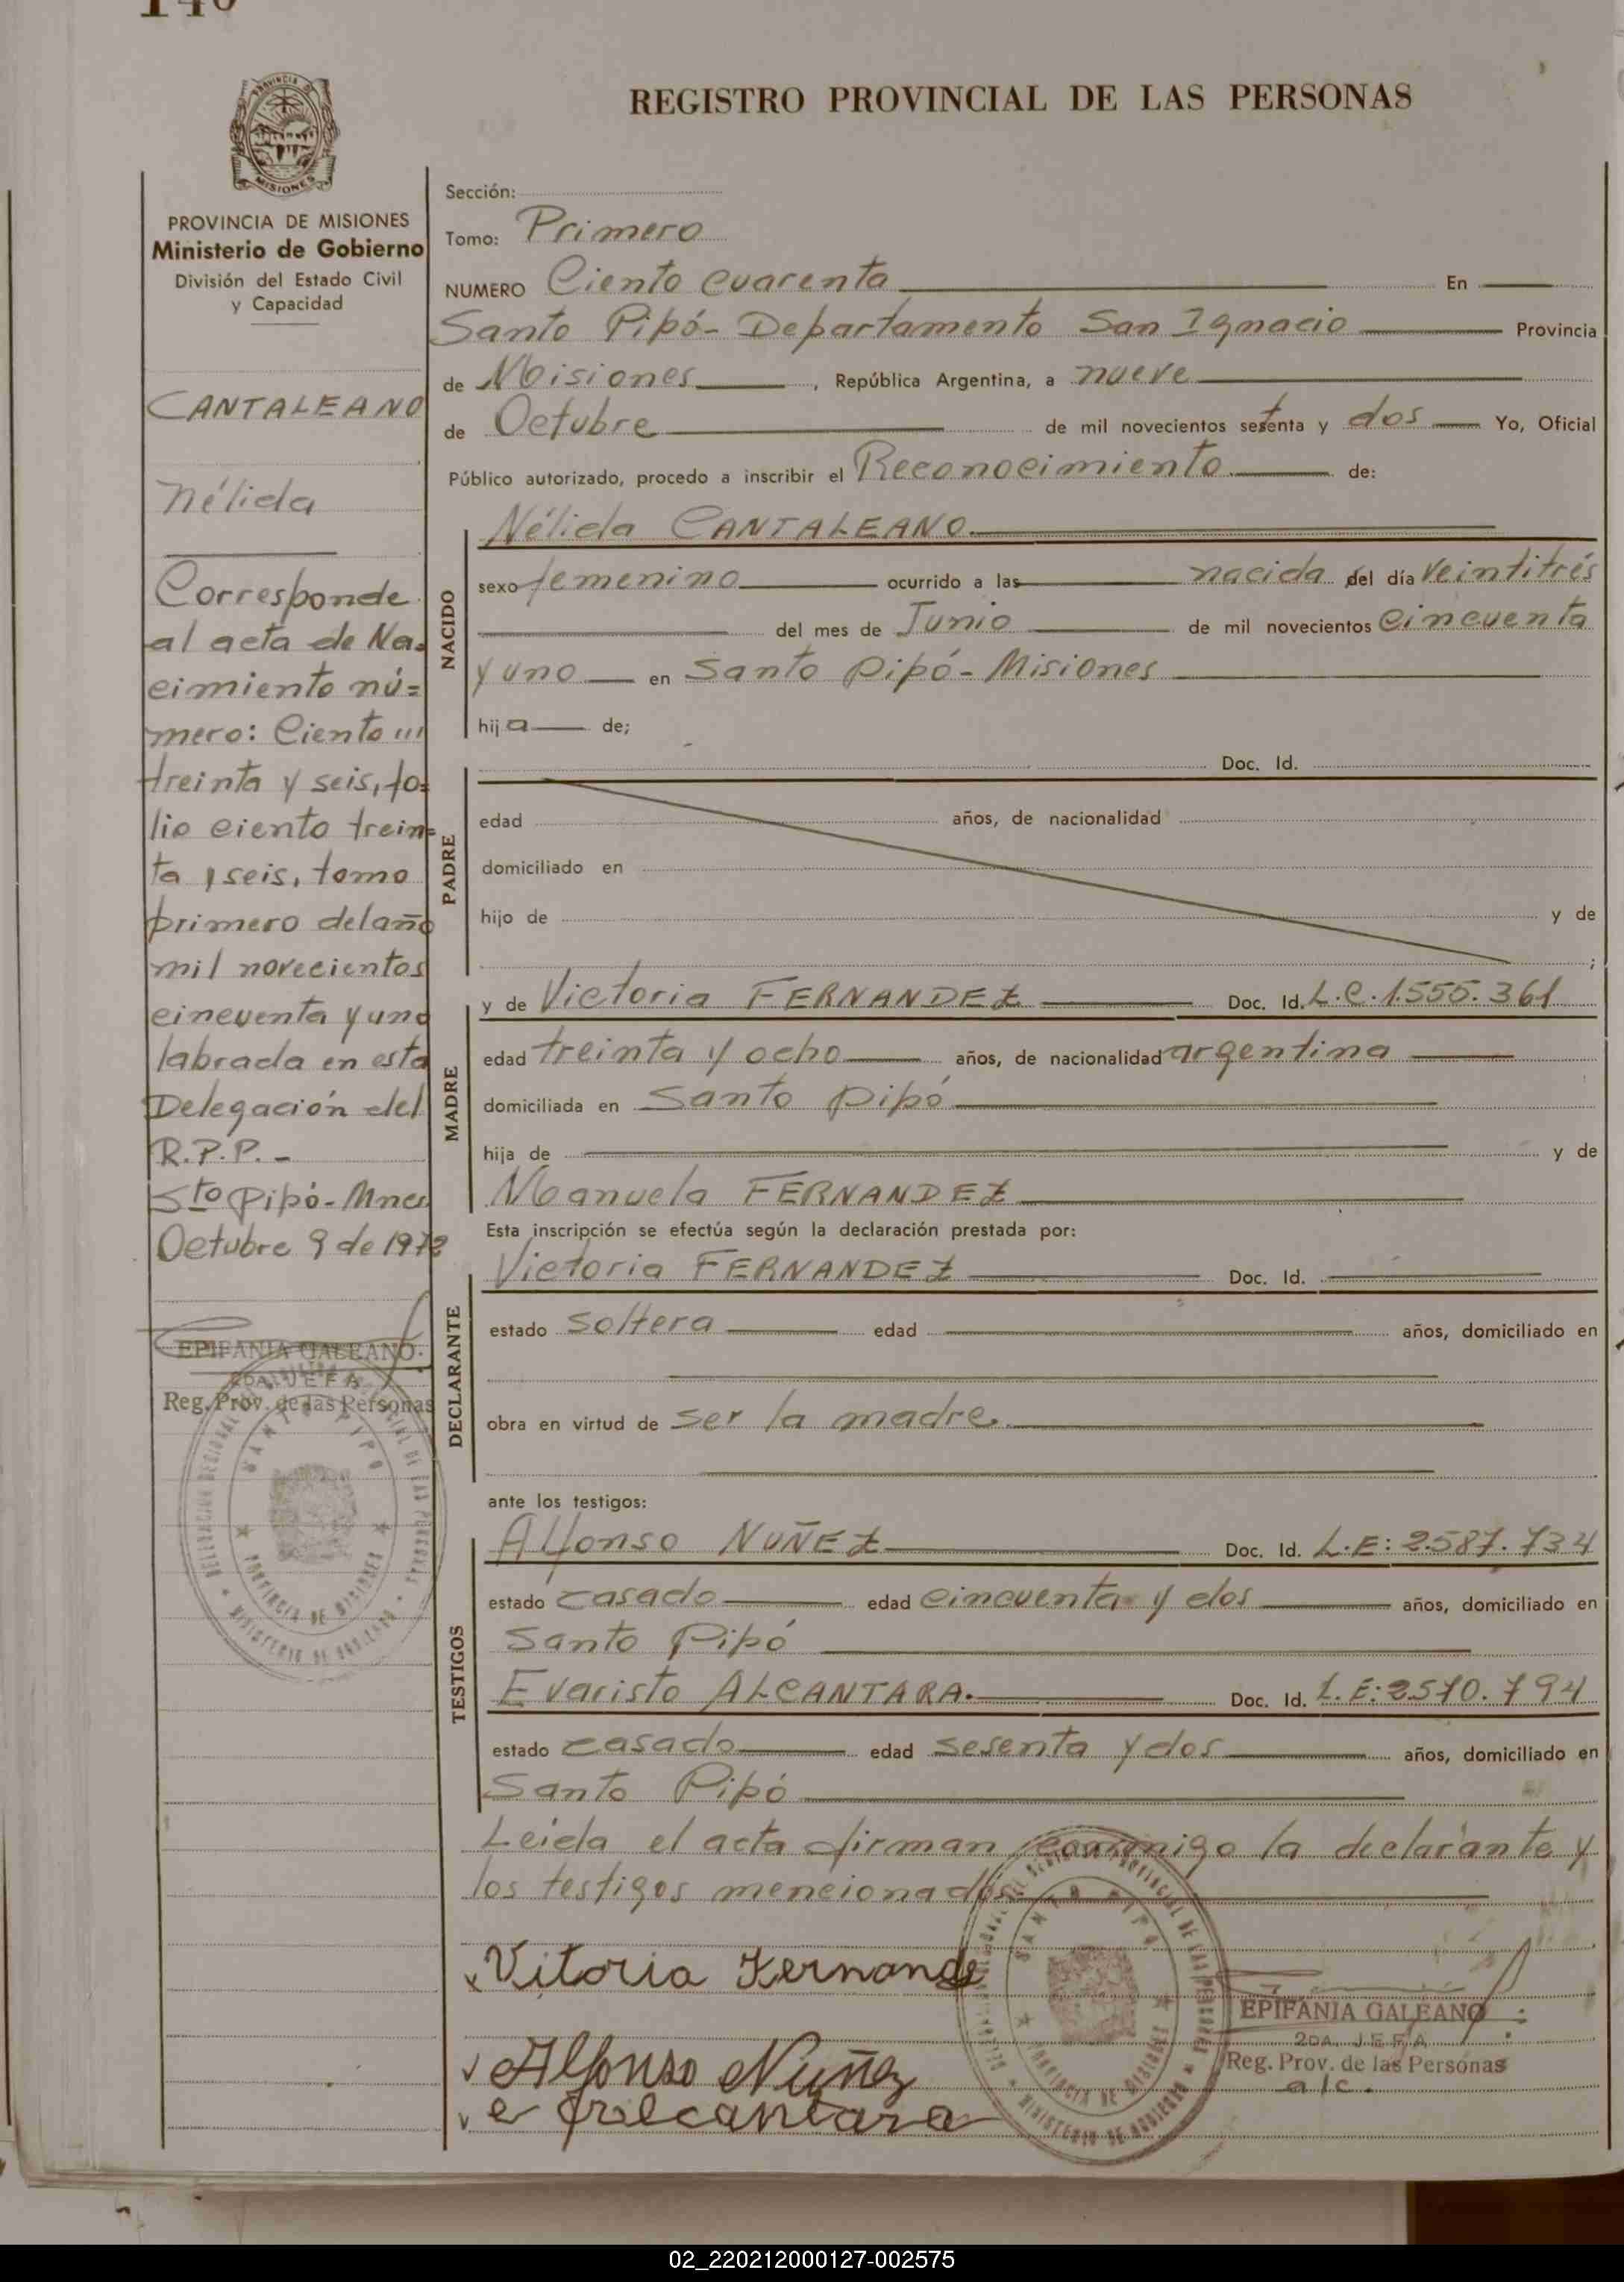 140
PROVINCIA
MISIONES
PROVINCIA DE MISIONES
Ministerio de Gobierno
División del Estado Civil
y Capacidad
CANTALEANO
Nélida
Corresponde
al acta de Na-
cimiento nú=
mero: Ciento
treinta y seis, fo=
lio ciento trein=
ta y seis, tomo
primero del año
mil novecientos
cincuenta y uno
labrada en esta
Delegación del
R.P.P.-
Sto Pipó-Mnes
Octubre 9 de 1972
EPIFANIA GALEANO
2DA. JEFA
Reg. Prov. de las Personas
REGISTRO PROVINCIAL DE LAS PERSONAS
Sección:
Tomo: Primero
NUMERO Ciento cuarenta En
Santo Pipó- Departamento San Ignacio Provincia
de Misiones, República Argentina, a nueve
de Octubre de mil novecientos setenta y dos Yo, Oficial
Público autorizado, procedo a inscribir el Reconocimiento de:
NACIDO
Nélida CANTALEANO
sexo femenino ocurrido a las nacida del día veintitrés
del mes de Junio de mil novecientos cincuenta
y uno en Santo Pipó-Misiones
hija de;
PADRE
Doc. Id.
edad años, de nacionalidad
domiciliado en
hijo de y de
;
MADRE
y de Victoria FERNANDEZ Doc. Id. L.C.1.555.361
edad treinta y ocho años, de nacionalidad argentina
domiciliada en Santo Pipó
hija de y de
Manuela FERNANDEZ
Esta inscripción se efectúa según la declaración prestada por:
DECLARANTE
Victoria FERNANDEZ Doc. Id.
estado soltera edad años, domiciliado en
obra en virtud de ser la madre.
ante los testigos:
TESTIGOS
Alfonso NUÑEZ Doc. Id. L.E: 2.587.734
estado casado edad cincuenta y dos años, domiciliado en
Santo Pipó
Evaristo ALCANTARA. Doc. Id. L.E: 2.570.794
estado casado edad sesenta y dos años, domiciliado en
Santo Pipó
Leida el acta firman conmigo la declarante y
los testigos mencionados
Vitoria Fernande
Alfonso Nuñez
EPIFANIA GALEANO
2DA. JEFA
Reg. Prov. de las Personas
a/c.
SANTO PIPO
PROVINCIA DE MISIONES
MINISTERIO DE GOBIERNO
02_220212000127-002575